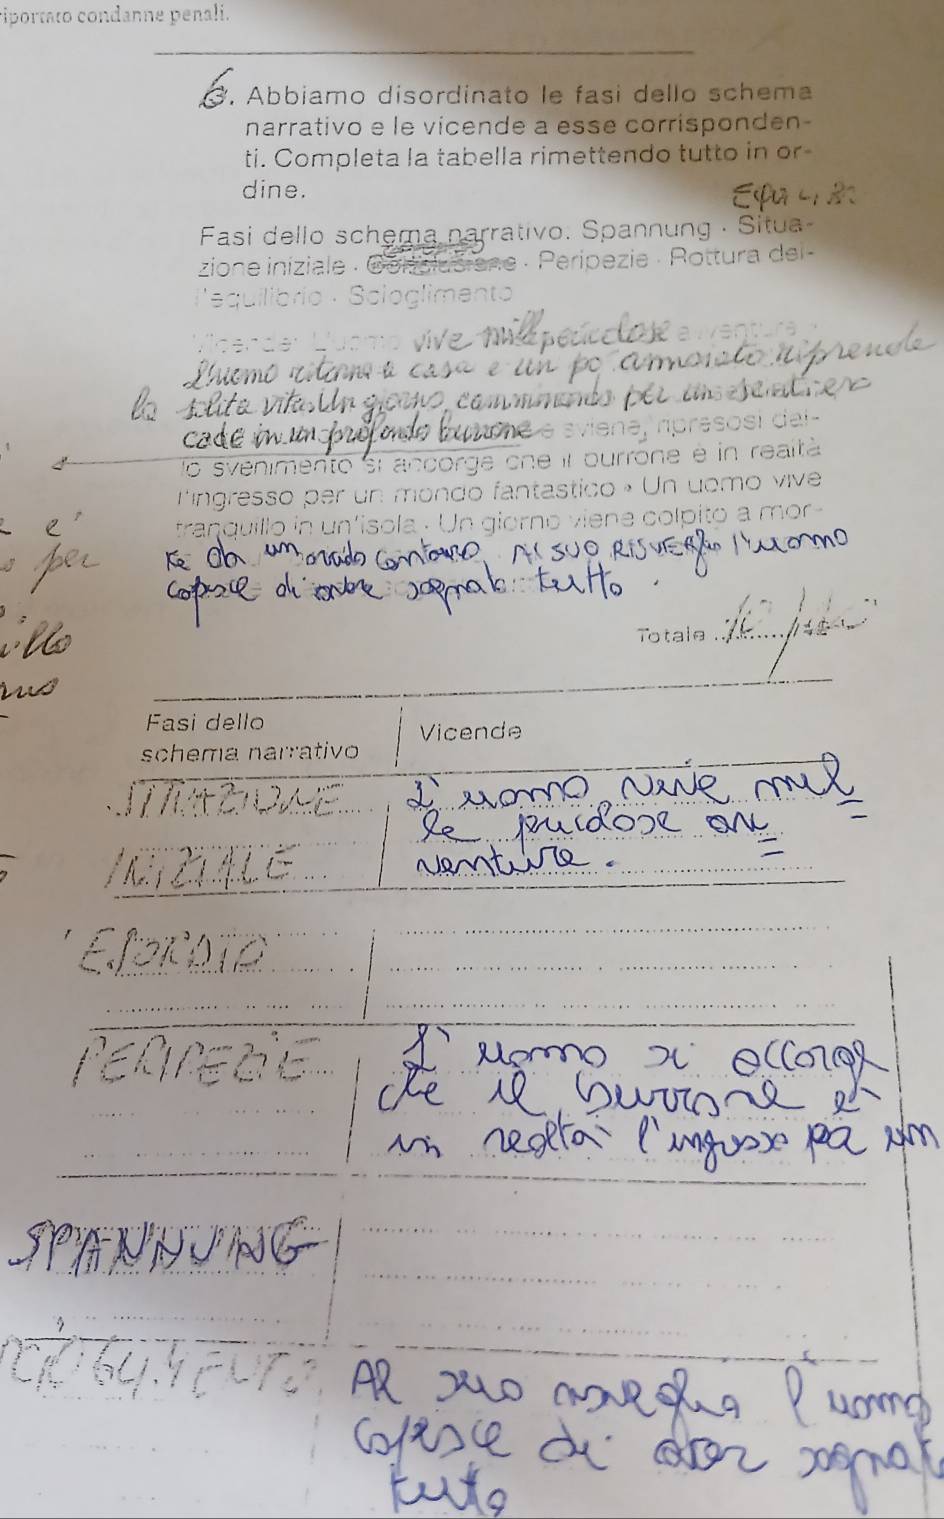 riportato condanne penali.
6. Abbiamo disordinato le fasi dello schema
narrativo e le vicende a esse corrisponden-
ti. Completa la tabella rimettendo tutto in or-
dine.
Fasi dello schema narrativo: Spannung · Situa-
zione iniziale · · Peripezie · Rottura del-
l'equilibrio · Scioglimento
Vicende: L'uomo vive mille pericolose avventure
L'uomo ritorna a casa e un po' ammalato riprende
la solita vita. Un giorno, camminando per un sentiero
cade in un profondo burrone e sviene, ripresosi dal-
lo svenimento si accorge che il burrone è in realtà
l'ingresso per un mondo fantastico · Un uomo vive
tranquillo in un'isola · Un giorno viene colpito a mor-
te da un AL SUO RISVEGLIO l'uomo
capisce di sognato tutto
e'
per
Totale
Fasi dello
schema narrativo
Vicende
SITUAZIONE
INIZIALE
L'uomo vive mil
le pericolose av
venture.
ESORDIO
PERIPEZIE
L'uomo si accorge
che il burrone e'
in realta' l'ingresso per un
SPANNUNG
Al suo risveglio l'uomo
capisce di aver sognato
tutto